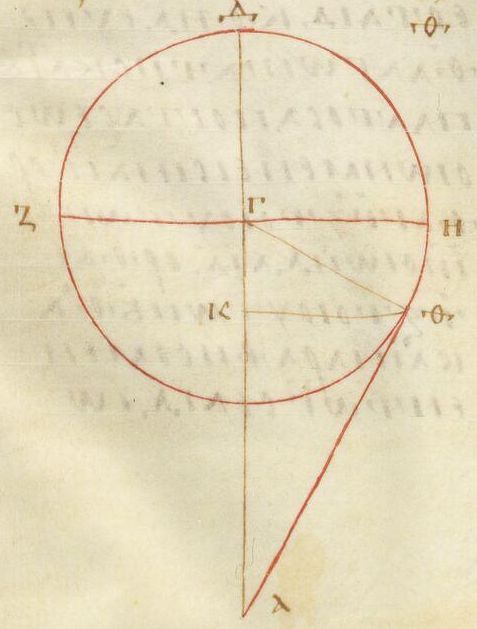 Δ
Θ
Ζ Γ Η
Κ Θ
Α